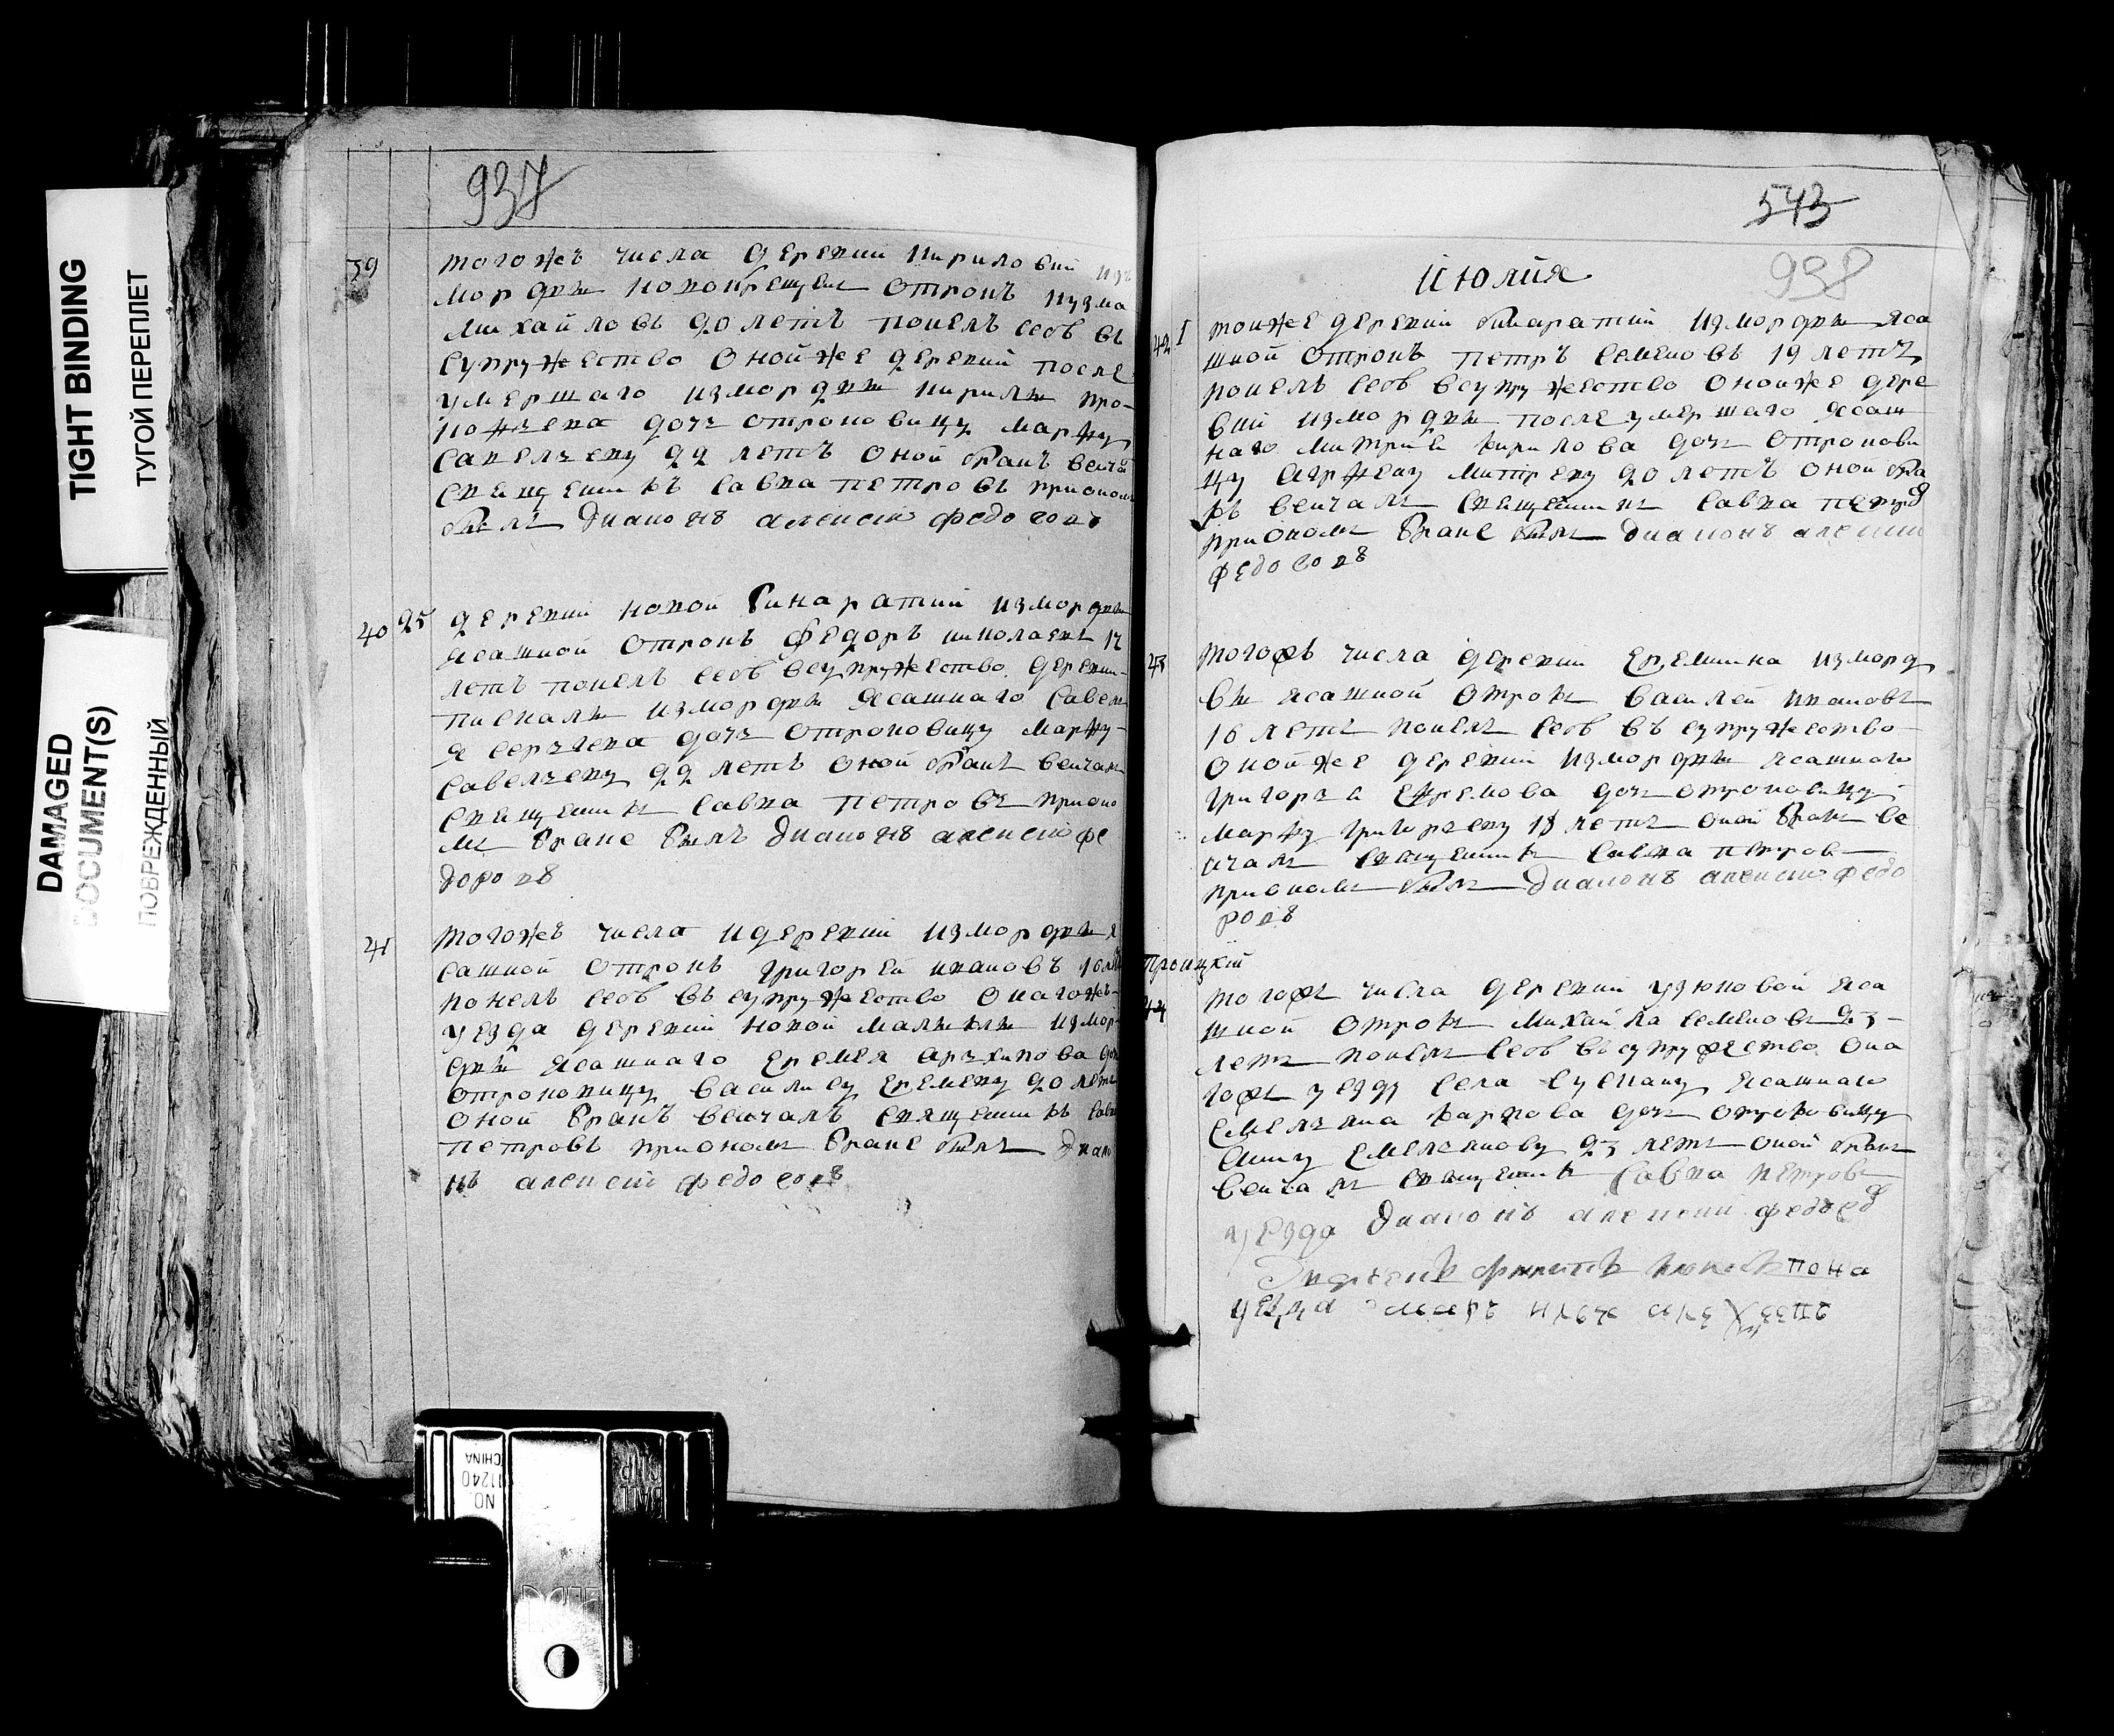 TIGHT BINDING
ТУГОЙ ПЕРЕПЛЕТ
DAMAGED
DOCUMENT(S)
ПОВРЕЖДЕННЫЙ
937
39
тогожъ числа деревни Кириловки изъ
мордвы новокрещенъ отрокъ Кузма
Михайловъ 20 летъ понелъ себѣ въ
супружество оной же деревни после
умершаго измордвы Кирилы Про-
кофьева дочь отроковицу Марфу
Савельеву 22 летъ оной бракъ венча
священникъ Савва Петровъ приономъ
былъ Диаконъ алексей федоровъ
40 25 деревни новой измордвы
ясашной отрокъ Федоръ николаевъ 17
летъ понелъ себѣ всупружество деревни
измордвы ясашнаго Савель
я Сергеева дочь отроковицу Марфу
Савельеву 22 летъ оной бракъ венчалъ
священникъ Савва Петровъ прионо
мъ браке былъ Диаконъ алексей фе
доровъ
41
тогожъ числа идеревни измордвы я
сашной отрокъ Григорей ивановъ 16 ле
понелъ себѣ въ супружество онагожъ
уезда деревни новой измор
двы ясашнаго Еремея архипова доч
отроковицу Василису Еремеву 20 летъ
оной бракъ венчалъ священникъ Савва
Петровъ приономъ браке былъ Диако
нъ алексей федоровъ
543
938
Июлия
42 1 тоиже деревни измордвы яса
шной отрокъ Петръ Семеновъ 19 летъ
понелъ себѣ всупружество оноиже дере
вни измордвы после умершаго ясаш
наго Митрия Кирилова дочь отрокови
цу Митреву 20 летъ оной бра
къ венчалъ священникъ Савва Петров
приономъ браке былъ Диаконъ алексии
федоровъ
43
тогожъ числа деревни Еремкина изморд
вы ясашной отрокъ Василей ивановъ
16 летъ понелъ себѣ въ супружество
оной же деревни измордвы ясашнаго
Григорья Ефремова дочь отроковицу
Марфу Григорьеву 18 летъ оной бракъ ве
нчалъ священникъ Савва Петровъ
приономъ былъ Диаконъ алексии федо
ровъ
Троицкій
44
тогожъ числа деревни Узюковой яса
шной отрокъ Михайла Семеновъ 23
летъ понелъ себѣ въ супружество она
гожъ уезду села ясашнаго
Емельяна Карпова дочь отроковицу
Анну Емельянову 23 летъ оной бракъ
венчалъ священникъ Савва Петровъ
уезда Диаконъ алексеи федоров
NO.
11240
CHINA
BALL
CLIP